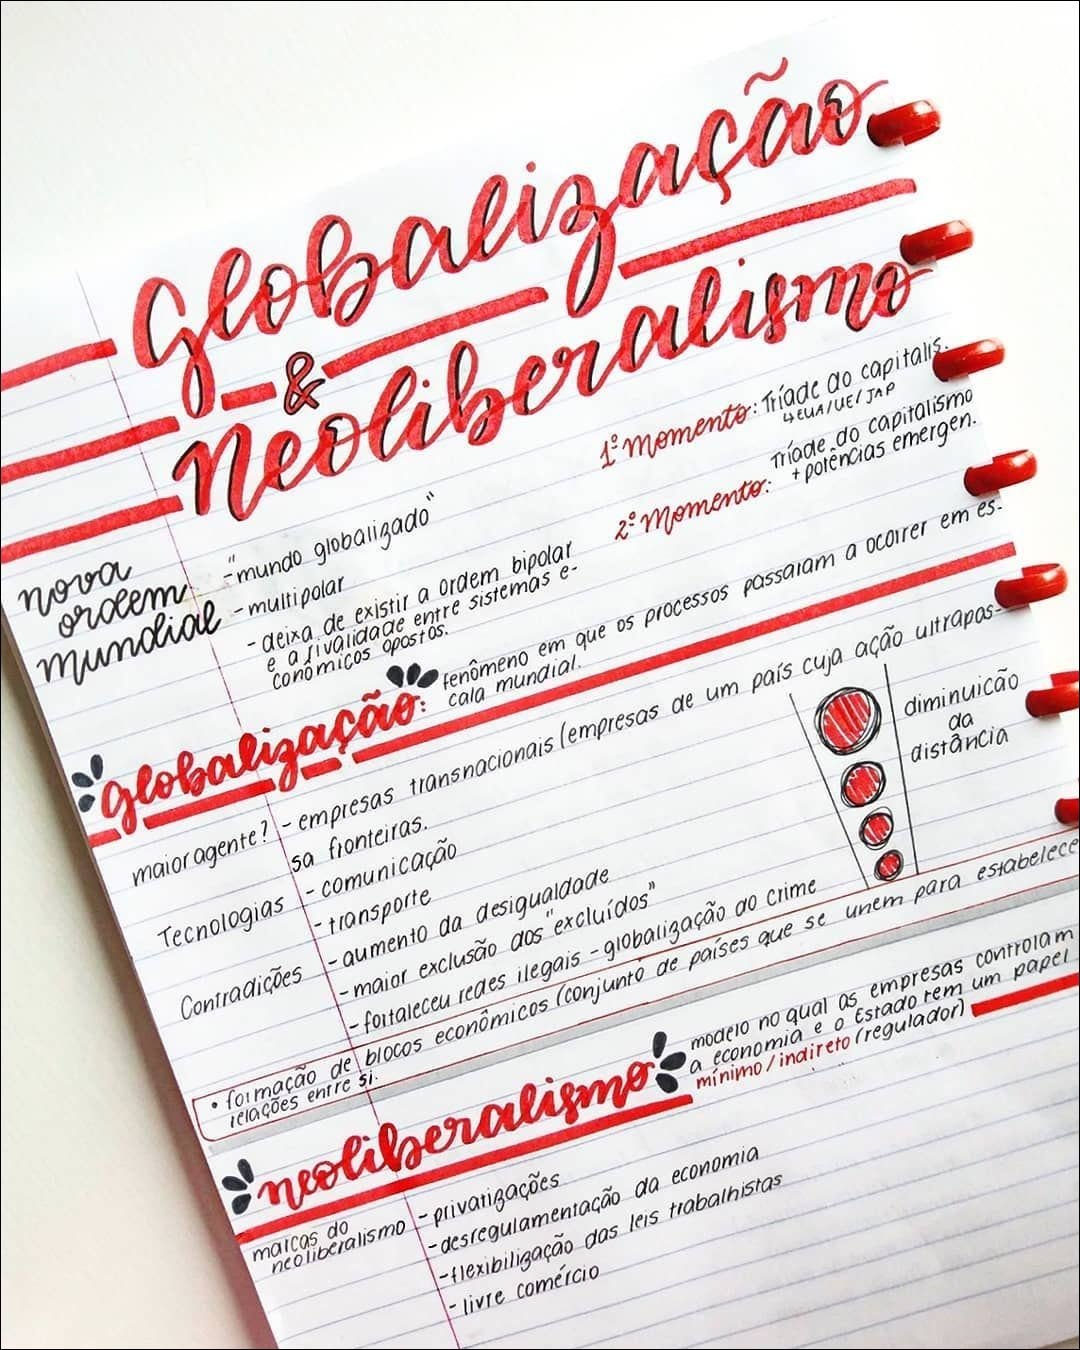 Globalização
&
Neoliberalismo
1º momento: Tríade do capitalis.
↳EUA/UE/JAP
2º momento: Tríade do capitalismo
+ potências emergen.
nova
ordem
mundial
- "mundo globalizado"
- multipolar
- deixa de existir a ordem bipolar
e a rivalidade entre sistemas e-
conômicos opostos.
globalização: fenômeno em que os processos passaram a ocorrer em es-
cala mundial.
maior agente? - empresas transnacionais (empresas de um país cuja ação ultrapas-
sa fronteiras.
Tecnologias - comunicação
- transporte
diminuicão
da
distância
Contradições - aumento da desigualdade
- maior exclusão dos "excluídos"
- fortaleceu redes ilegais - globalização do crime
• formação de blocos econômicos (conjunto de países que se unem para estabelece
relações entre si.
neoliberalismo modelo no qual as empresas controlam
a economia e o Estado tem um papel
mínimo/indireto (regulador)
marcas do
neoliberalismo - privatizações
- desregulamentação da economia
- flexibilização das leis trabalhistas
- livre comércio